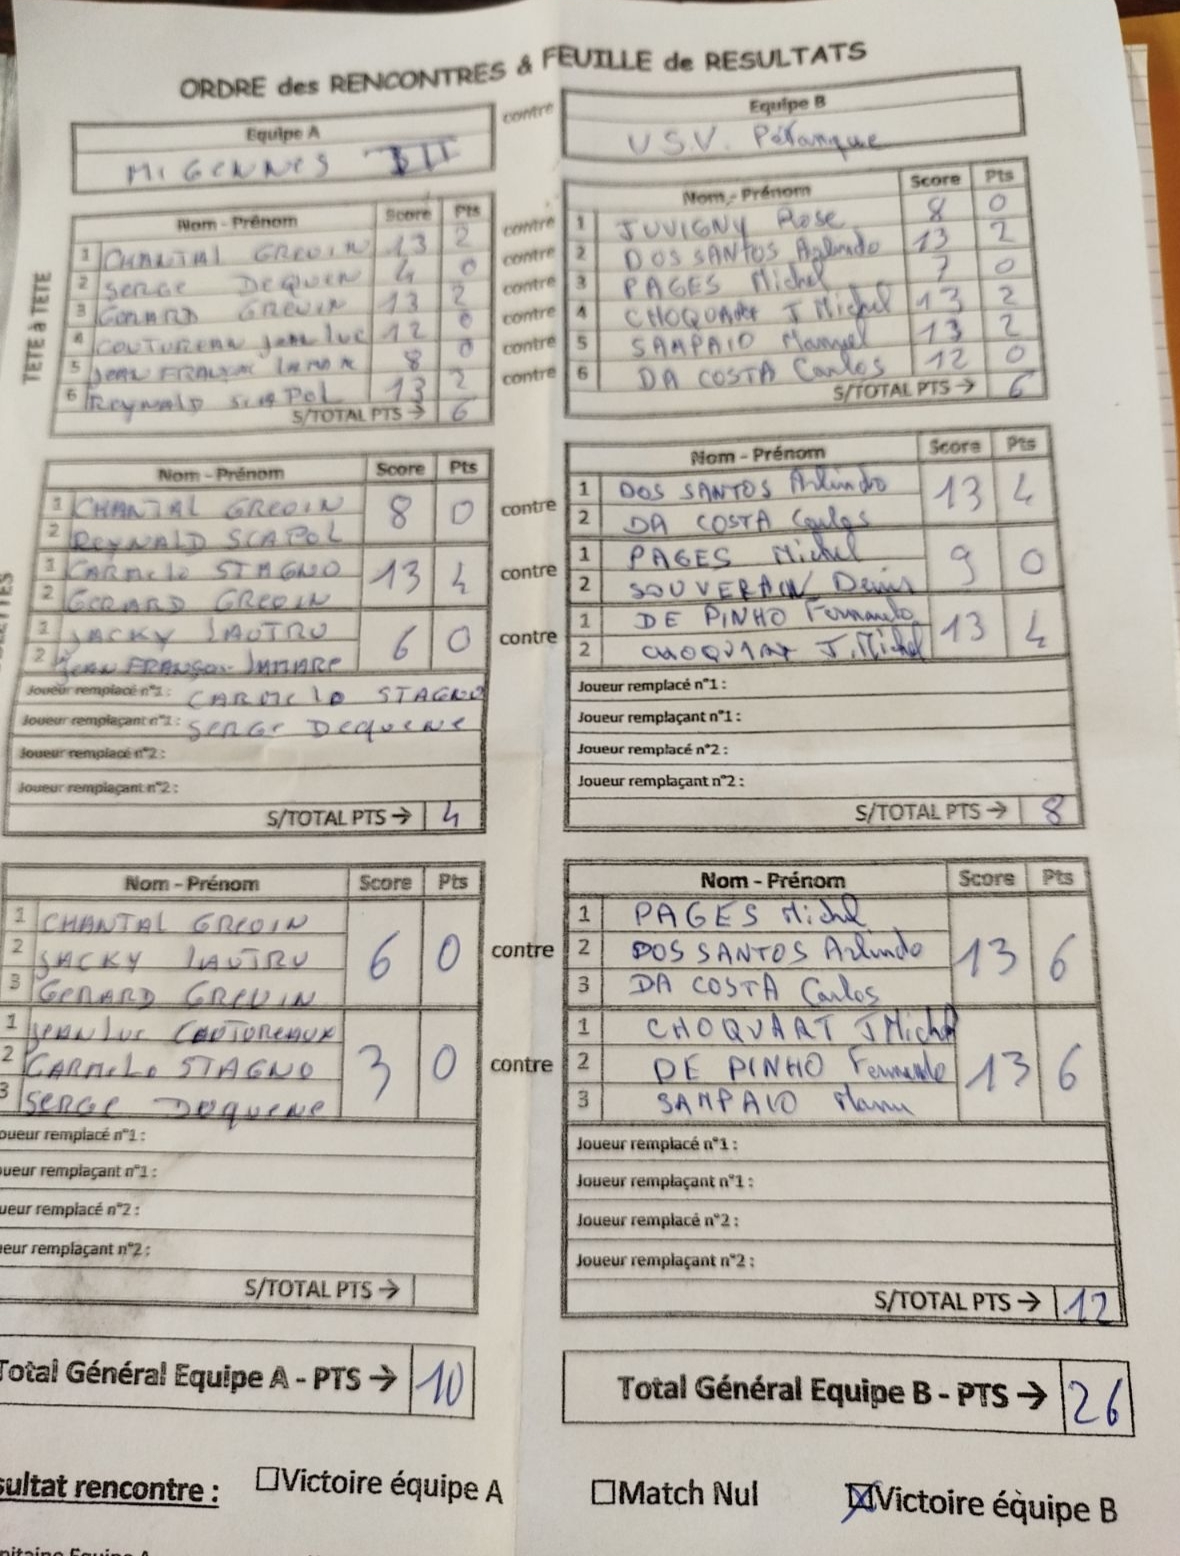 ORDRE des RENCONTRES & FEUILLE de RESULTATS
Equipe A contre Equipe B
MIGENNES III U.S.V. Pétanque
TETE à TETE
Nom - Prénom Score Pts Nom - Prénom Score Pts
1 CHANTAL GREVIN 13 2 contre 1 JUVIGNY Rose 8 0
2 SERGE DEQUEN 4 0 contre 2 DOS SANTOS Arlindo 13 2
3 GERARD GREVIN 13 2 contre 3 PAGES Michel 7 0
4 COUTUREAU jean luc 12 0 contre 4 CHOQUART J Michel 13 2
5 JEAN FRANÇOIS 8 0 contre 5 SAMPAIO Manuel 13 2
6 REYNALD SCAPOL 13 2 contre 6 DA COSTA Carlos 12 0
S/TOTAL PTS → 6 S/TOTAL PTS → 6
Nom - Prénom Score Pts Nom - Prénom Score Pts
1 CHANTAL GREVIN 8 0 contre 1 DOS SANTOS Arlindo 13 4
2 REYNALD SCAPOL 2 DA COSTA Carlos
1 CARMELO STAGNO 13 4 contre 1 PAGES Michel 9 0
2 GERARD GREVIN 2 SOUVERAIN Denis
1 JACKY LAUTRU 6 0 contre 1 DE PINHO Fernando 13 4
2 JEAN FRANÇOI- LAMARE 2 CHOQUART J.Michel
Joueur remplacé n°1 : CARMELO STAGNO Joueur remplacé n°1 :
Joueur remplaçant n°1 : SERGE DEQUENE Joueur remplaçant n°1 :
Joueur remplacé n°2 : Joueur remplacé n°2 :
Joueur remplaçant n°2 : Joueur remplaçant n°2 :
S/TOTAL PTS → 4 S/TOTAL PTS → 8
Nom - Prénom Score Pts Nom - Prénom Score Pts
1 CHANTAL GREVIN 6 0 contre 1 PAGES Michel 13 6
2 JACKY LAUTRU 2 DOS SANTOS Arlindo
3 GERARD GREVIN 3 DA COSTA Carlos
1 JEAN LUC COUTUREAUX 3 0 contre 1 CHOQUART J Michel 13 6
2 CARMELO STAGNO 2 DE PINHO Fernando
3 SERGE DEQUENE 3 SAMPAIO Manu
oueur remplacé n°1 : Joueur remplacé n°1 :
ueur remplaçant n°1 : Joueur remplaçant n°1 :
ueur remplacé n°2 : Joueur remplacé n°2 :
eur remplaçant n°2 : Joueur remplaçant n°2 :
S/TOTAL PTS → S/TOTAL PTS → 12
Total Général Equipe A - PTS → 10 Total Général Equipe B - PTS → 26
sultat rencontre : ☐Victoire équipe A ☐Match Nul ☒Victoire équipe B